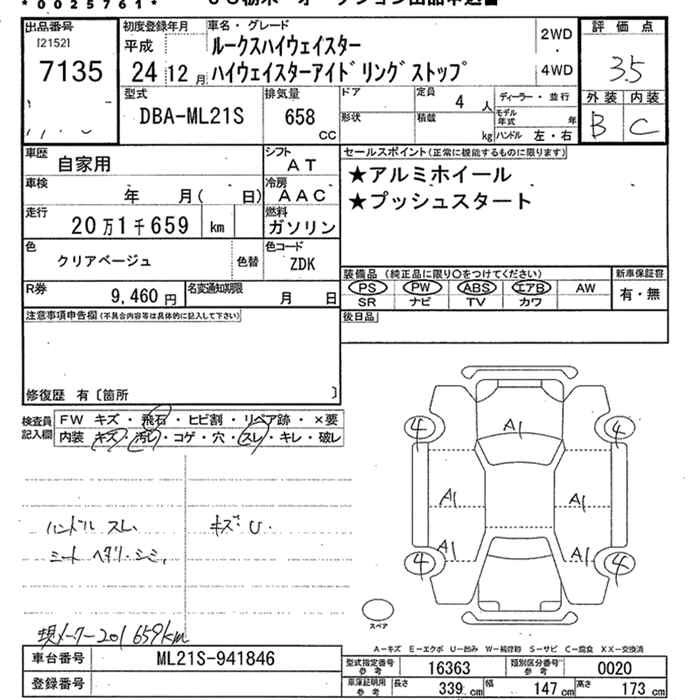 *0025761*
出品番号
[2152]
7135
初度登録年月
平成
24 12 月
車名・グレード
ルークスハイウェイスター
ハイウェイスターアイドリングストップ
2WD
4WD
評価点
3.5
外装 内装
B C
型式
DBA-ML21S
排気量
658
CC
ドア
形状
定員
4 人
積載
kg
ディーラー・並行
モデル年式 年
ハンドル 左・右
車歴
自家用
シフト
AT
車検
年 月( 日)
冷房
AAC
走行
20万1千659 km
燃料
ガソリン
色
クリアベージュ
色替
色コード
ZDK
R券
9,460 円
名変通知期限
月 日
セールスポイント(正常に機能するものに限ります)
★アルミホイール
★プッシュスタート
装備品(純正品に限り○をつけてください)
PS PW ABS エアB AW
SR ナビ TV カワ
新車保証書
有・無
後日品
注意事項申告欄(不具合内容等は具体的に記入して下さい)
修復歴 有〔箇所 〕
検査員記入欄
FW キズ・飛石・ヒビ割・リペア跡・×要
内装 キズ・汚レ・コゲ・穴・スレ・キレ・破レ
ハンドル スレ、 キズ U.
シート ヘタリ・シミ、
現メーター201659km
A1
4 4
A1 A1
A1 A1
4 4
スペア
A-キズ E-エクボ U-凹み W-補修跡 S-サビ C-腐食 XX-交換済
車台番号
ML21S-941846
登録番号
型式指定番号 参考
16363
類別区分番号 参考
0020
車庫証明用 参考
長さ 339 cm
幅 147 cm
高さ 173 cm